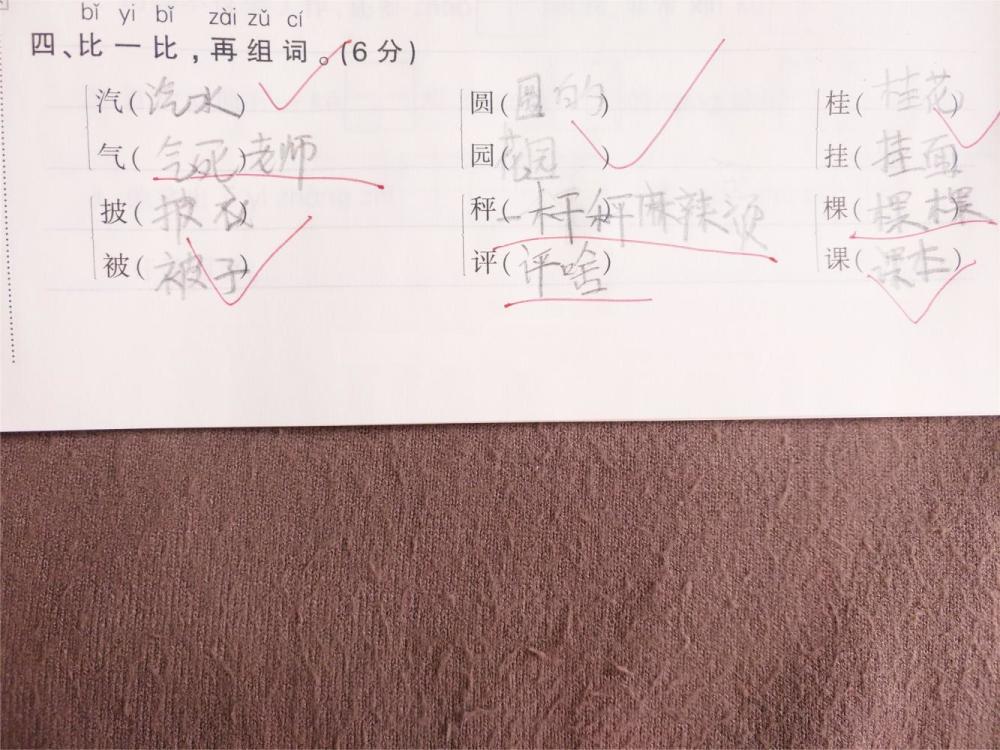 bǐ yi bǐ zài zǔ cí
四、比一比，再组词。(6分)
汽(汽水) 圆(圆的) 桂(桂花)
气(气死)老师 园(花园) 挂(挂面)
披(披衣) 秤(一秤秤麻辣烫) 棵(棵棵)
被(被子) 评(评啥) 课(课本)